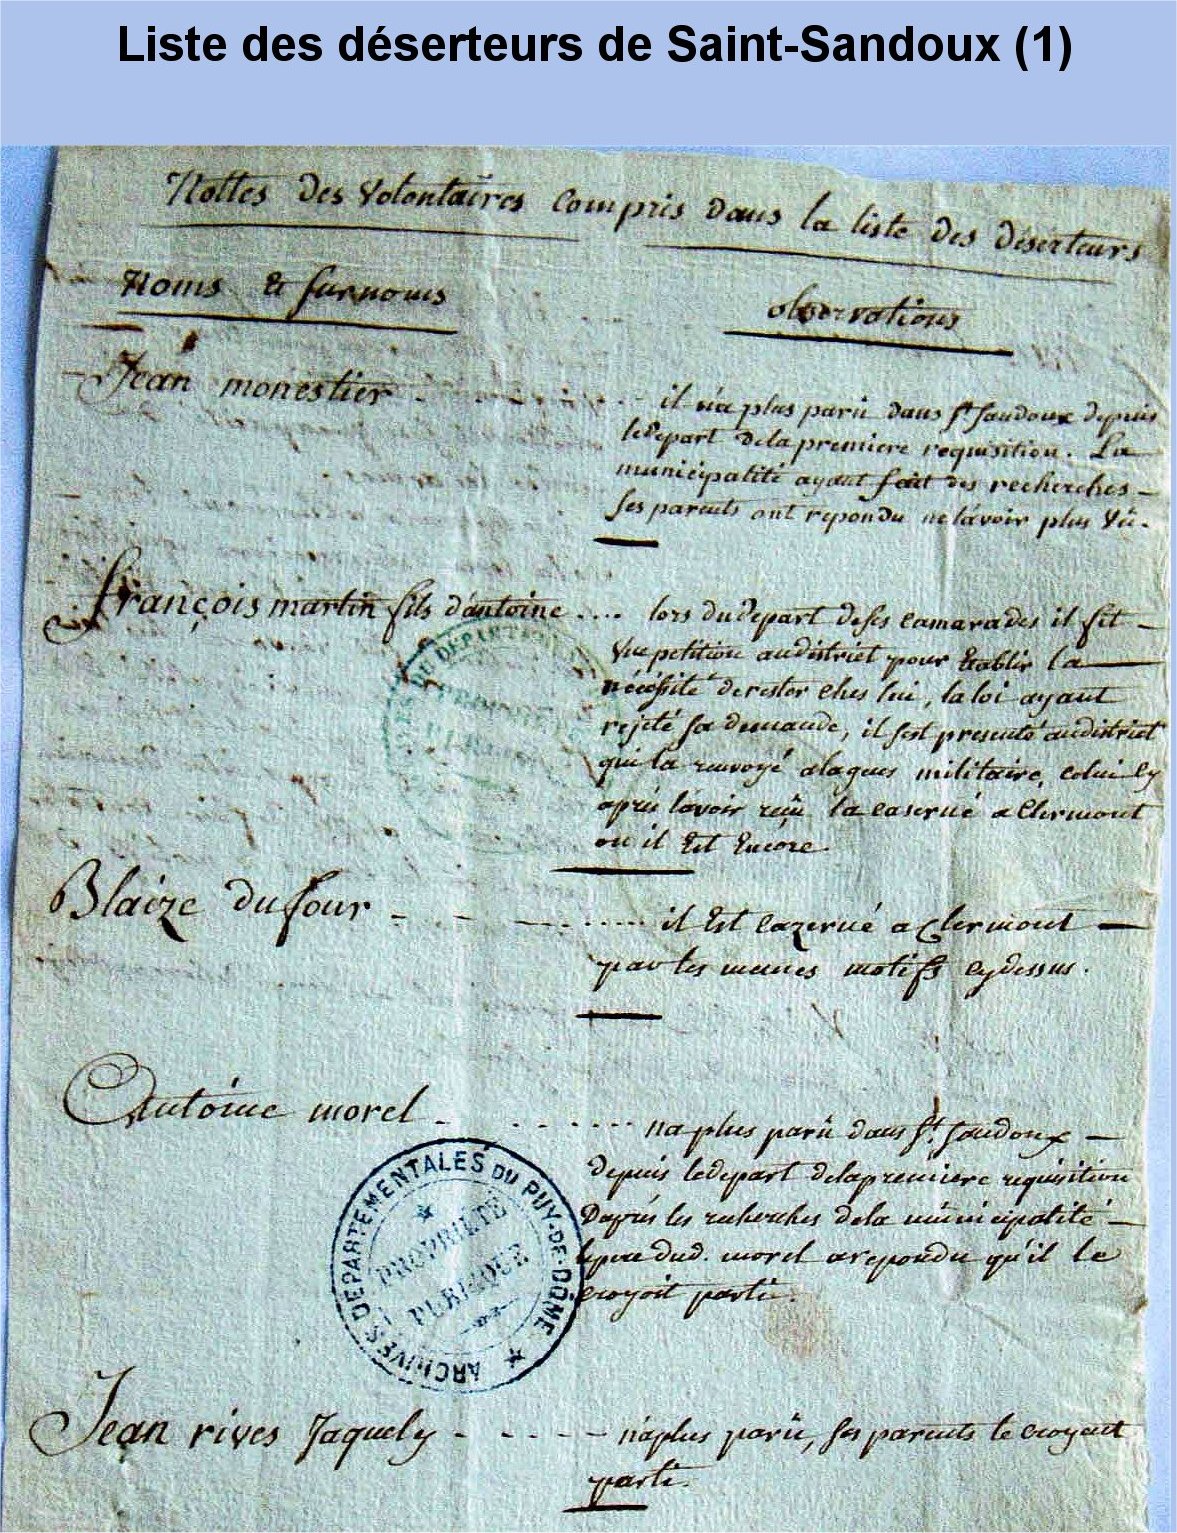 Liste des déserteurs de Saint-Sandoux (1)
Nottes des Volontaires Compris dans la liste des déserteurs
Noms et surnoms
observations
Jean monestier
il n'a plus parû dans St Sandoux depuis
le depart de la premiere requisition. La
municipalité ayant fait des recherches
ses parents ont repondu ne lavoir plus vû.
françois martin fils d'antoine .... lors du depart de ses camarades il fit
une petition au district pour Etablir la
nécéssité de rester ches lui, la loi ayant
rejeté sa demande, il s'est presenté au district
qui la renvoyé a militaire, celui cy
après lavoir reçû la caserné a Clermont
ou il Est Encore.
Blaize dufour
il Est cazerné a Clermont
par les memes motifs cy dessus.
Antoine morel
na plus parû dans St. Sandoux
depuis le depart de la premiere requisition
Daprés les recherches de la municipalité
le pere dud. morel a repondu qu'il le
croyoit parti.
ARCHIVES DÉPARTEMENTALES DU PUY-DE-DÔME
PROPRIÉTÉ
PUBLIQUE
Jean rives Jaquely
n'a plus parû, ses parents le croyent
parti.